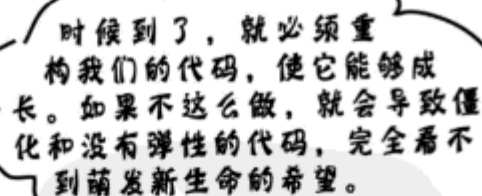 时候到了，就必须重
构我们的代码，使它能够成
长。如果不这么做，就会导致僵
化和没有弹性的代码，完全看不
到萌发新生命的希望。